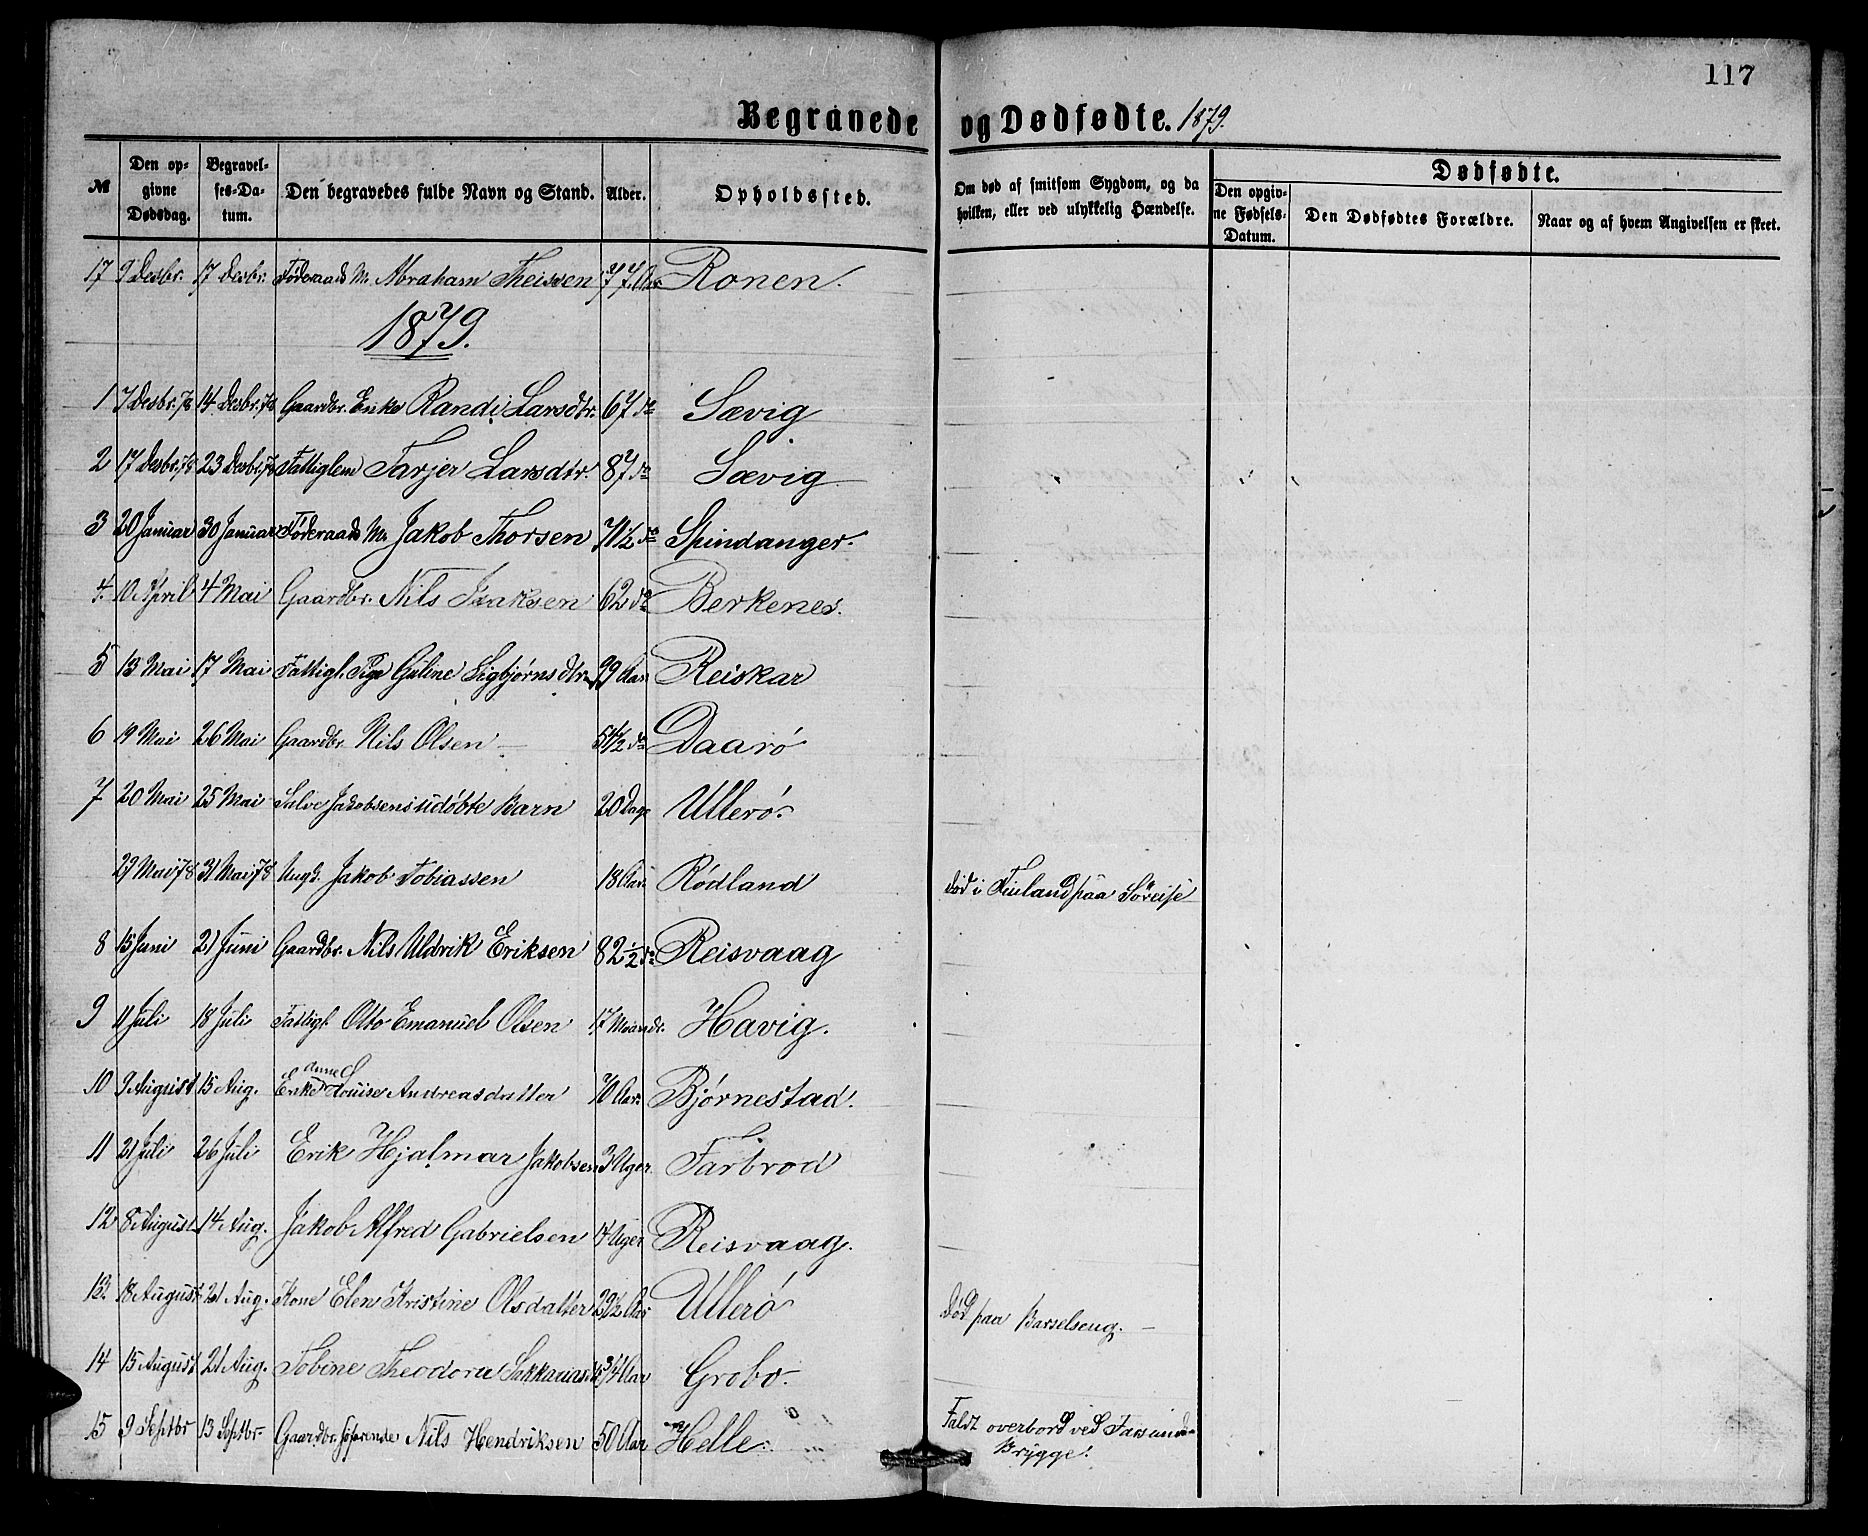 117
Begravede og Dødfødte. 1879.
№ Den opgivne Dødsdag. Begravelses-Datum. Den begravedes fulde Navn og Stand. Alder. Opholdssted. Om død af smitsom Sygdom, og da hvilken, eller ved ulykkelig Hændelse. Dødfødte.
Den opgivne Fødsels-Datum. Den Dødfødtes Forældre. Naar og af hvem Angivelsen er skeet.
17 9 Desbr. 17 Desbr. Føderaads M. Abraham Theissen 77 Aar Ronen.
1879.
1 7 Desbr. 78 14 Desbr. 78 Gaardbr. Enke Randi Larsdtr. 67 do Sævig
2 17 Desbr. 78 23 Desbr. 78 Fattiglem Tarjer Larsdtr. 87 do Sævig
3 20 Januar 30 Januar Føderaads M. Jakob Thorsen 71½ do Spindanger.
4. 10 April 4 Mai Gaardbr. Nils Isaksen 62 do Berkenes.
5 13 Mai 17 Mai Fattigl. Pige Guline Sigbjørnsdtr. 99 Aar Reiskar
6 19 Mai 26 Mai Gaardbr. Nils Olsen 54½ do Daarø
7 20 Mai 25 Mai Salve Jakobsens udøbte Barn 20 Dage Ullerø.
29 Mai 78 31 Mai 78 Ungk. Jakob Tobiassen 18 Aar Rødland død i Finland paa Søreise
8 15 Juni 21 Juni Gaardbr. Nils Uldrik Eriksen 82½ do Reisvaag
9 11 Juli 18 Juli Fattigl. Otto Emanuel Olsen 17 Maander. Havig.
10 9 August 15 Aug. Enke Anne Louise Andreasdatter 70 Aar. Bjørnestad.
11 21 Juli 26 Juli Erik Hjalmar Jakobsen 3 Uger. Farbrod
12 8 August 14 Aug. Jakob Alfred Gabrielsen 14 Uger Reisvaag.
13. 18 August 21 Aug. Kone Elen Kristine Olsdatter 29½ Aar Ullerø Død paa Barselseng.
14 15 August 21 Aug. Tobine Theodora 3/4 Aar Grobo.
15 9 Septbr 13 Septbr. Gaardbr. Søfarende Nils Hendriksen 50 Aar Helle. Faldt overbord ved Farsunds
Brygge.